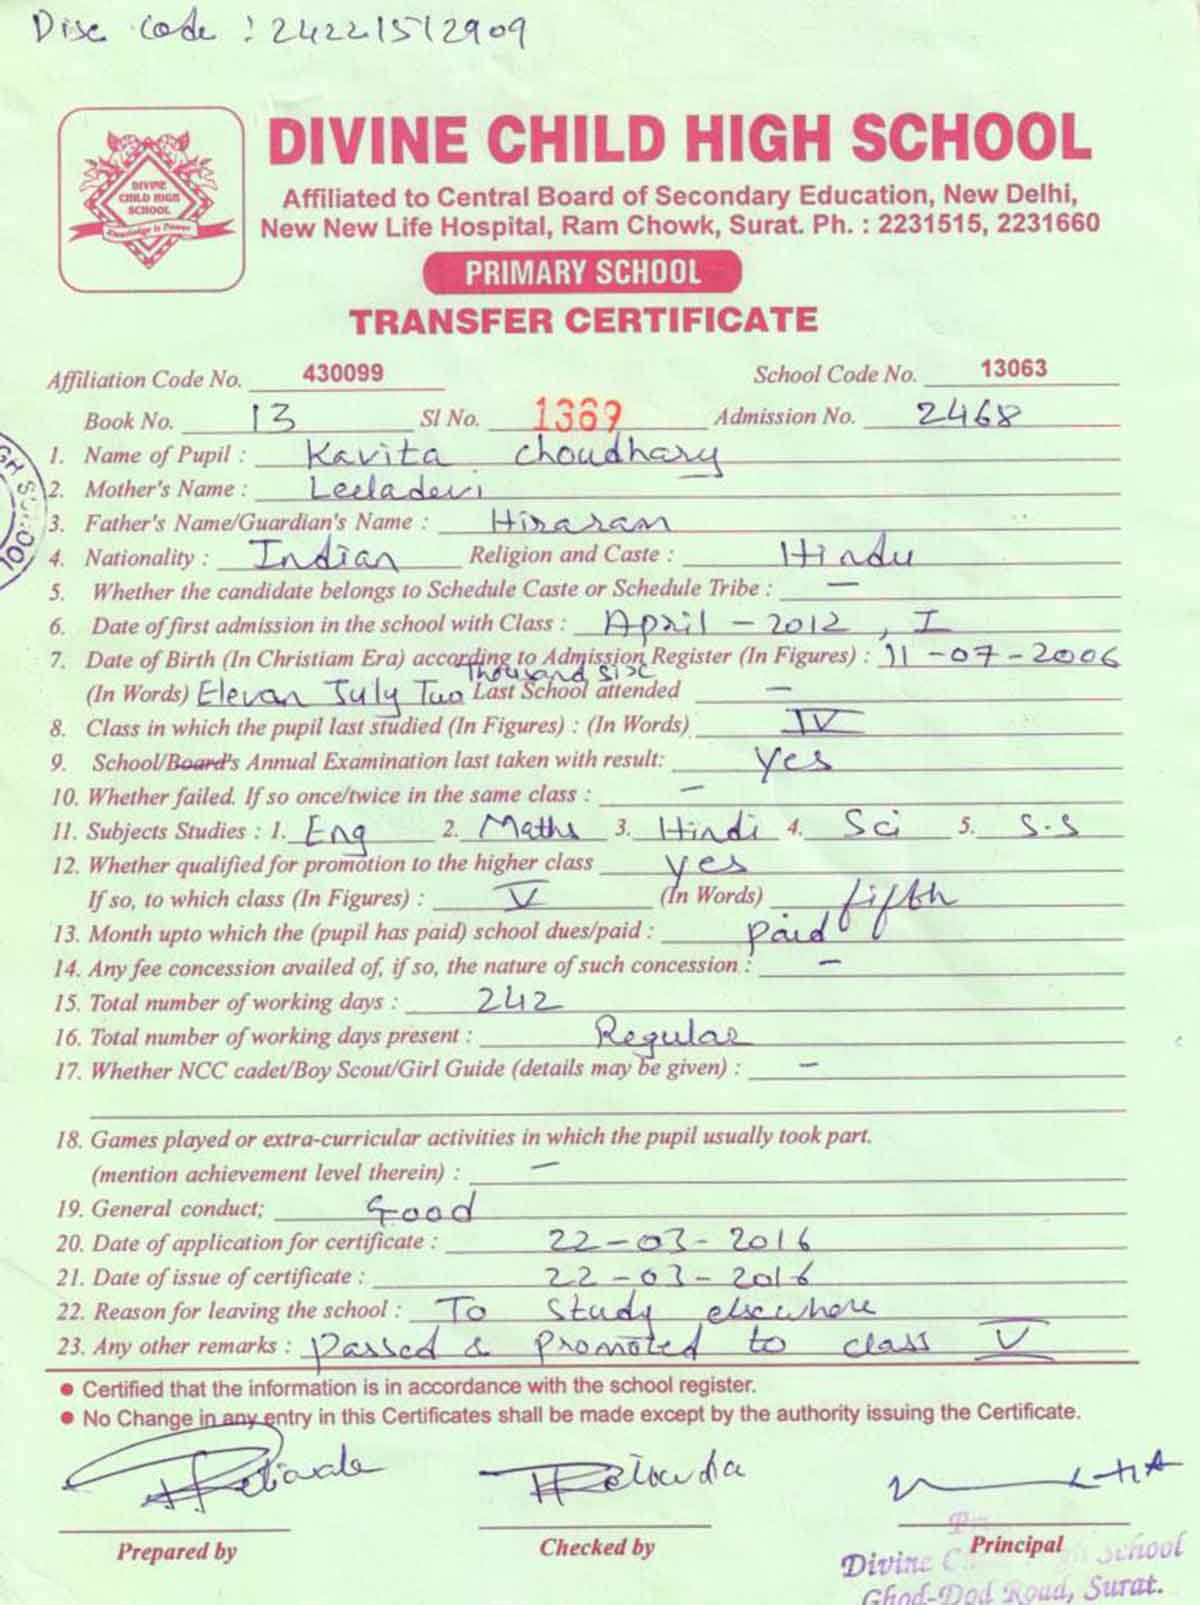 Disc code : 24221512909
DIVINE CHILD HIGH SCHOOL
DIVINE
CHILD HIGH
SCHOOL
Knowledge is Power
Affiliated to Central Board of Secondary Education, New Delhi,
New New Life Hospital, Ram Chowk, Surat. Ph. : 2231515, 2231660
PRIMARY SCHOOL
TRANSFER CERTIFICATE
Affiliation Code No. 430099 School Code No. 13063
Book No. 13 Sl No. 1369 Admission No. 2468
1. Name of Pupil : Kavita Choudhary
2. Mother's Name : Leeladevi
3. Father's Name/Guardian's Name : Hiraram
4. Nationality : Indian Religion and Caste : Hindu
5. Whether the candidate belongs to Schedule Caste or Schedule Tribe : —
6. Date of first admission in the school with Class : April - 2012, I
7. Date of Birth (In Christiam Era) according to Admission Register (In Figures) : 11-07-2006
(In Words) Elevan July Two Thousand Six Last School attended —
8. Class in which the pupil last studied (In Figures) : (In Words) IV
9. School/Board's Annual Examination last taken with result: Yes
10. Whether failed. If so once/twice in the same class : —
11. Subjects Studies : 1. Eng 2. Maths 3. Hindi 4. Sci 5. S.S
12. Whether qualified for promotion to the higher class yes
If so, to which class (In Figures) : V (In Words) fifth
13. Month upto which the (pupil has paid) school dues/paid : paid
14. Any fee concession availed of, if so, the nature of such concession : —
15. Total number of working days : 242
16. Total number of working days present : Regular
17. Whether NCC cadet/Boy Scout/Girl Guide (details may be given) : —
18. Games played or extra-curricular activities in which the pupil usually took part.
(mention achievement level therein) : —
19. General conduct; Good
20. Date of application for certificate : 22-03-2016
21. Date of issue of certificate : 22-03-2016
22. Reason for leaving the school : To Study elsewhere
23. Any other remarks : Passed & Promoted to class V
• Certified that the information is in accordance with the school register.
• No Change in any entry in this Certificates shall be made except by the authority issuing the Certificate.
Prepared by Checked by Principal
Divine School
Ghod-Dod Road, Surat.